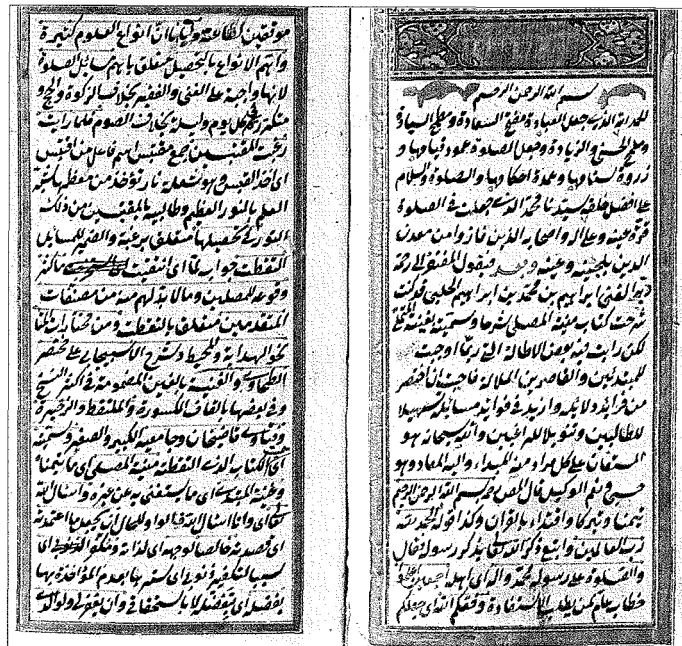 بسم الله الرحمن الرحيم
الحمد لله الذى جعل العبادة مفتاح السعادة ومطمح السيادة
الحسنى والزيادة وجعل الصلوة عمود قبابها و
ذروة سنامها وعمدة احكامها والصلوة والسلام
على افضل خلقه سيدنا محمد الذى جعلت فى الصلوة
قرة عينه وعلى اله واصحابه الذين فازوا من معدن
الدين بلجينه وعينه وبعد فيقول المفتقر الى رحمة
ربه الغنى ابراهيم بن محمد بن ابراهيم الحلبى قد كنت
شرحت كتاب منية المصلى شرحا وسميته بغنية المتملى
لكن رأيت فيه بعض الاطالة التى ربما اوجبت
للمبتدئين والقاصرين الملالة فاحببت ان اختصر
من فرائده لا بل وازيد فى فوائد مسائله تسهيلا
للطالبين وتنويلا للراغبين والله سبحانه هو
المستعان على كل مراد ومنه المبداء واليه المعاد وهو
حسبى ونعم الوكيل قال المص بسم الله الرحمن الرحيم
تيمنا وتبركا واقتداء بالقران وكذا قوله الحمد لله
رب العالمين واتبع ذكر الله تعالى بذكر رسوله فقال
والصلوة على رسوله محمد واله اى اهله اجمعين اعلموا
خطاب عام لمن يطلب الاستفادة وفقكم الله اى جعلكم
موفقين لطاعته وايانا ان انواع العلوم كثيرة
واهم الانواع بالتحصيل متعلق باهم مسائل الصلوة
لانها واجبة على الغنى والفقير بخلاف الزكوة والحج و
متكررة كل يوم وليلة بخلاف الصوم فلما رأيت
رغبة المقتبسين جمع مقتبس اسم فاعل من اقتبس
اى اخذ القبس وهو شعلة نار تؤخذ من معظمها شبه
العلم بالنور العظيم وطالبيه بالمقتبسين من ذلك
النور فى تحصيلها متعلق برغبة والضمير للمسائل
التقطت جواب لما اى انتقيت ما كثر
وقوعه للمصلين وما لا بد لهم منه من مصنفات
المتقدمين متعلق بالتقطت ومن مختارات
نحو الهداية والمحيط وشرح الاسبيجابى على مختصر
الطحاوى والغنية بالغين المضمومة فى اكثر النسخ
وفى بعضها بالقاف المكسورة والملتقط والذخيرة
وفتاوى قاضيخان وجامعيه الكبير والصغير وسميته
اى الكتاب الذى التقطته منية المصلى اى ما يتمناه
وغنية المبتدى اى ما يستغنى به عن غيره واسأل الله
تعالى اى وانا اسأل الله قالوا وللحال ان يجعل ما اعتمدته
اى قصدته خالصا لوجهه اى لذاته ومكفرا اى
سببا لتكفير ذنوبى اى سترها بعدم المؤاخذة بها
بفضله اى بتفضله لا باستحقاقى وان يغفر لى ولوالدى